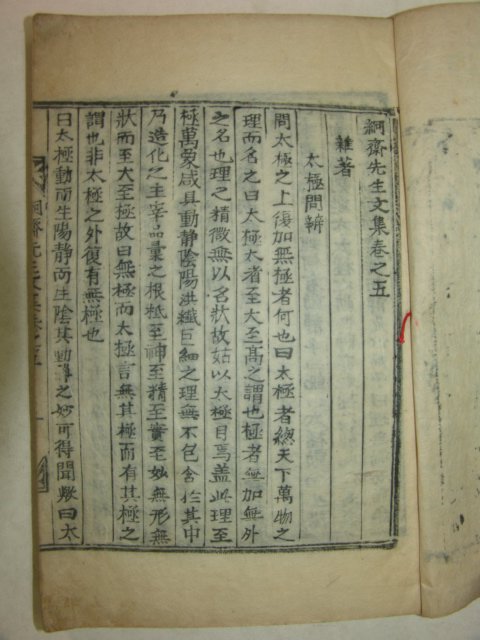 絅齋先生文集卷之五
雜著
太極問辨
問太極之上復加無極者何也曰太極者總天下萬物之
理而名之曰太極太者至大至高之謂也極者無加無外
之名也理之精微無以名狀故姑以太極目焉盖此理至
極萬彙咸具動静陰陽洪纖巨細之理無不包含於其中
乃造化之主宰品彙之根柢至神至精至實至妙無形無
狀而至大至極故曰無極而太極言無其極而有其極之
謂也非太極之外復有無極也
曰太極動而生陽静而生陰其動静之妙可得聞歟曰太